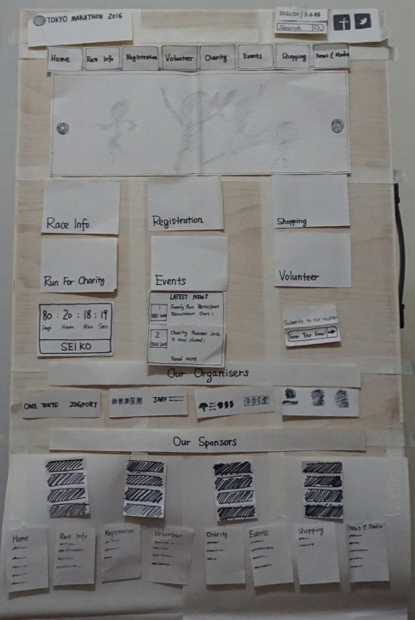 TOKYO MARATHON 2016
ENGLISH
Search
Home Race Info Registration Volunteer Charity Events Shopping News & Media
Race Info Registration Shopping
Run For Charity Events Volunteer
80 : 20 : 18 : 19
Days Hours Min Secs
SEIKO
LATEST NEWS
Family Run Participant
Recruitment Starts!
Charity Runner 2016
is now closed!
Read more
Subscribe to our newsletter
Enter Your Email
Our Organisers
ONE TOKYO JOGPORT JAAF
Our Sponsors
Home Race Info Registration Volunteer Charity Events Shopping News & Media